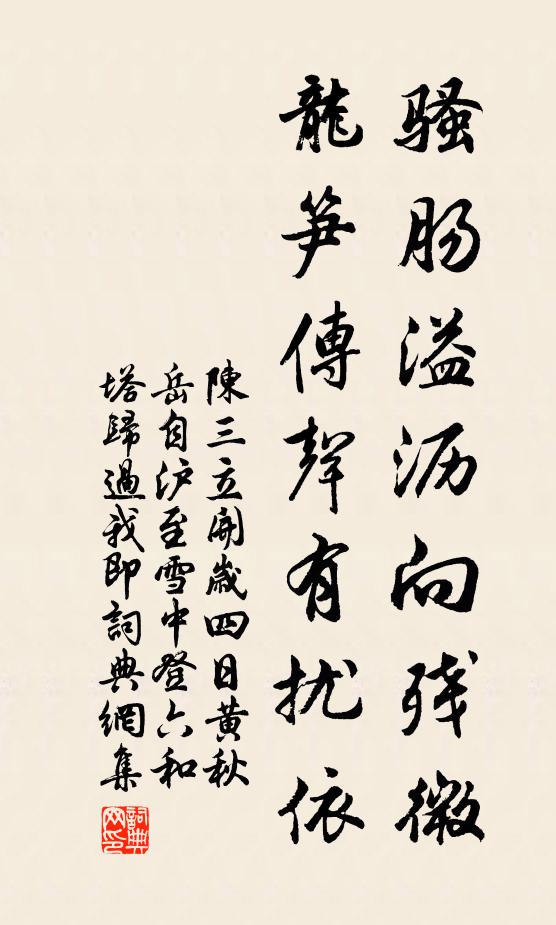 骚肠溢沥向残微
龍笋傳聲有扰依
陳三立開歲四日黄秋
岳自沪至雪中登六和
塔歸過我即詞典網集
詞典网印